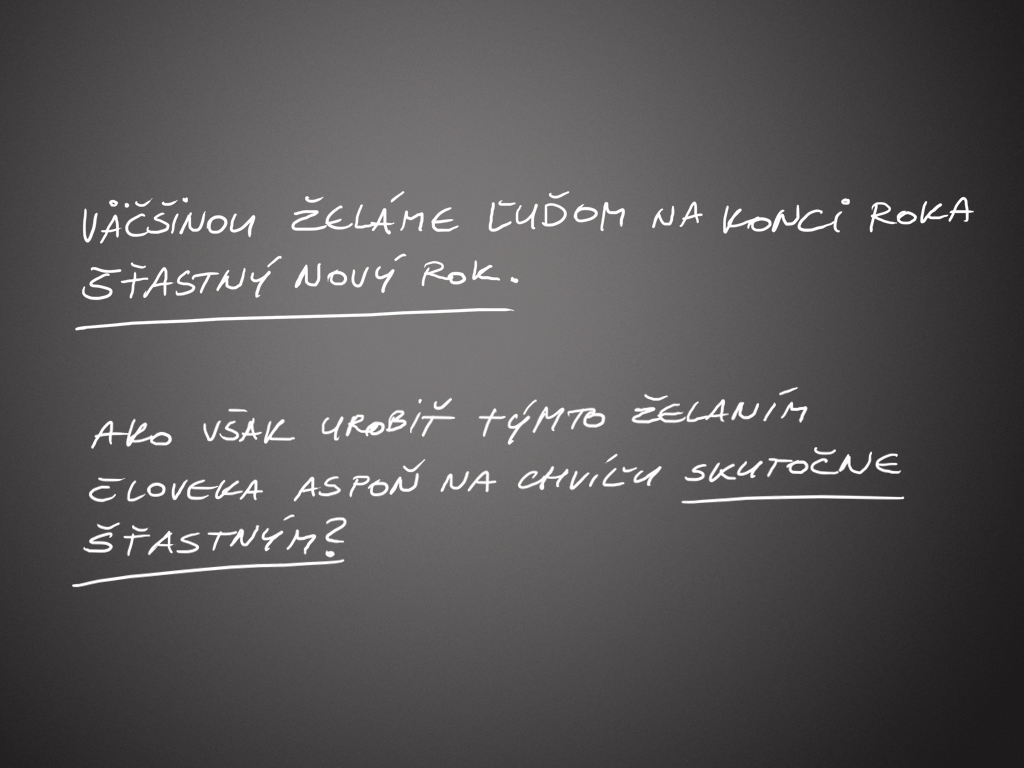 VÄČŠINOU ŽELÁME ĽUĎOM NA KONCI ROKA
ŠŤASTNÝ NOVÝ ROK.
AKO VŠAK UROBIŤ TÝMTO ŽELANÍM
ČLOVEKA ASPOŇ NA CHVÍĽU SKUTOČNE
ŠŤASTNÝM?